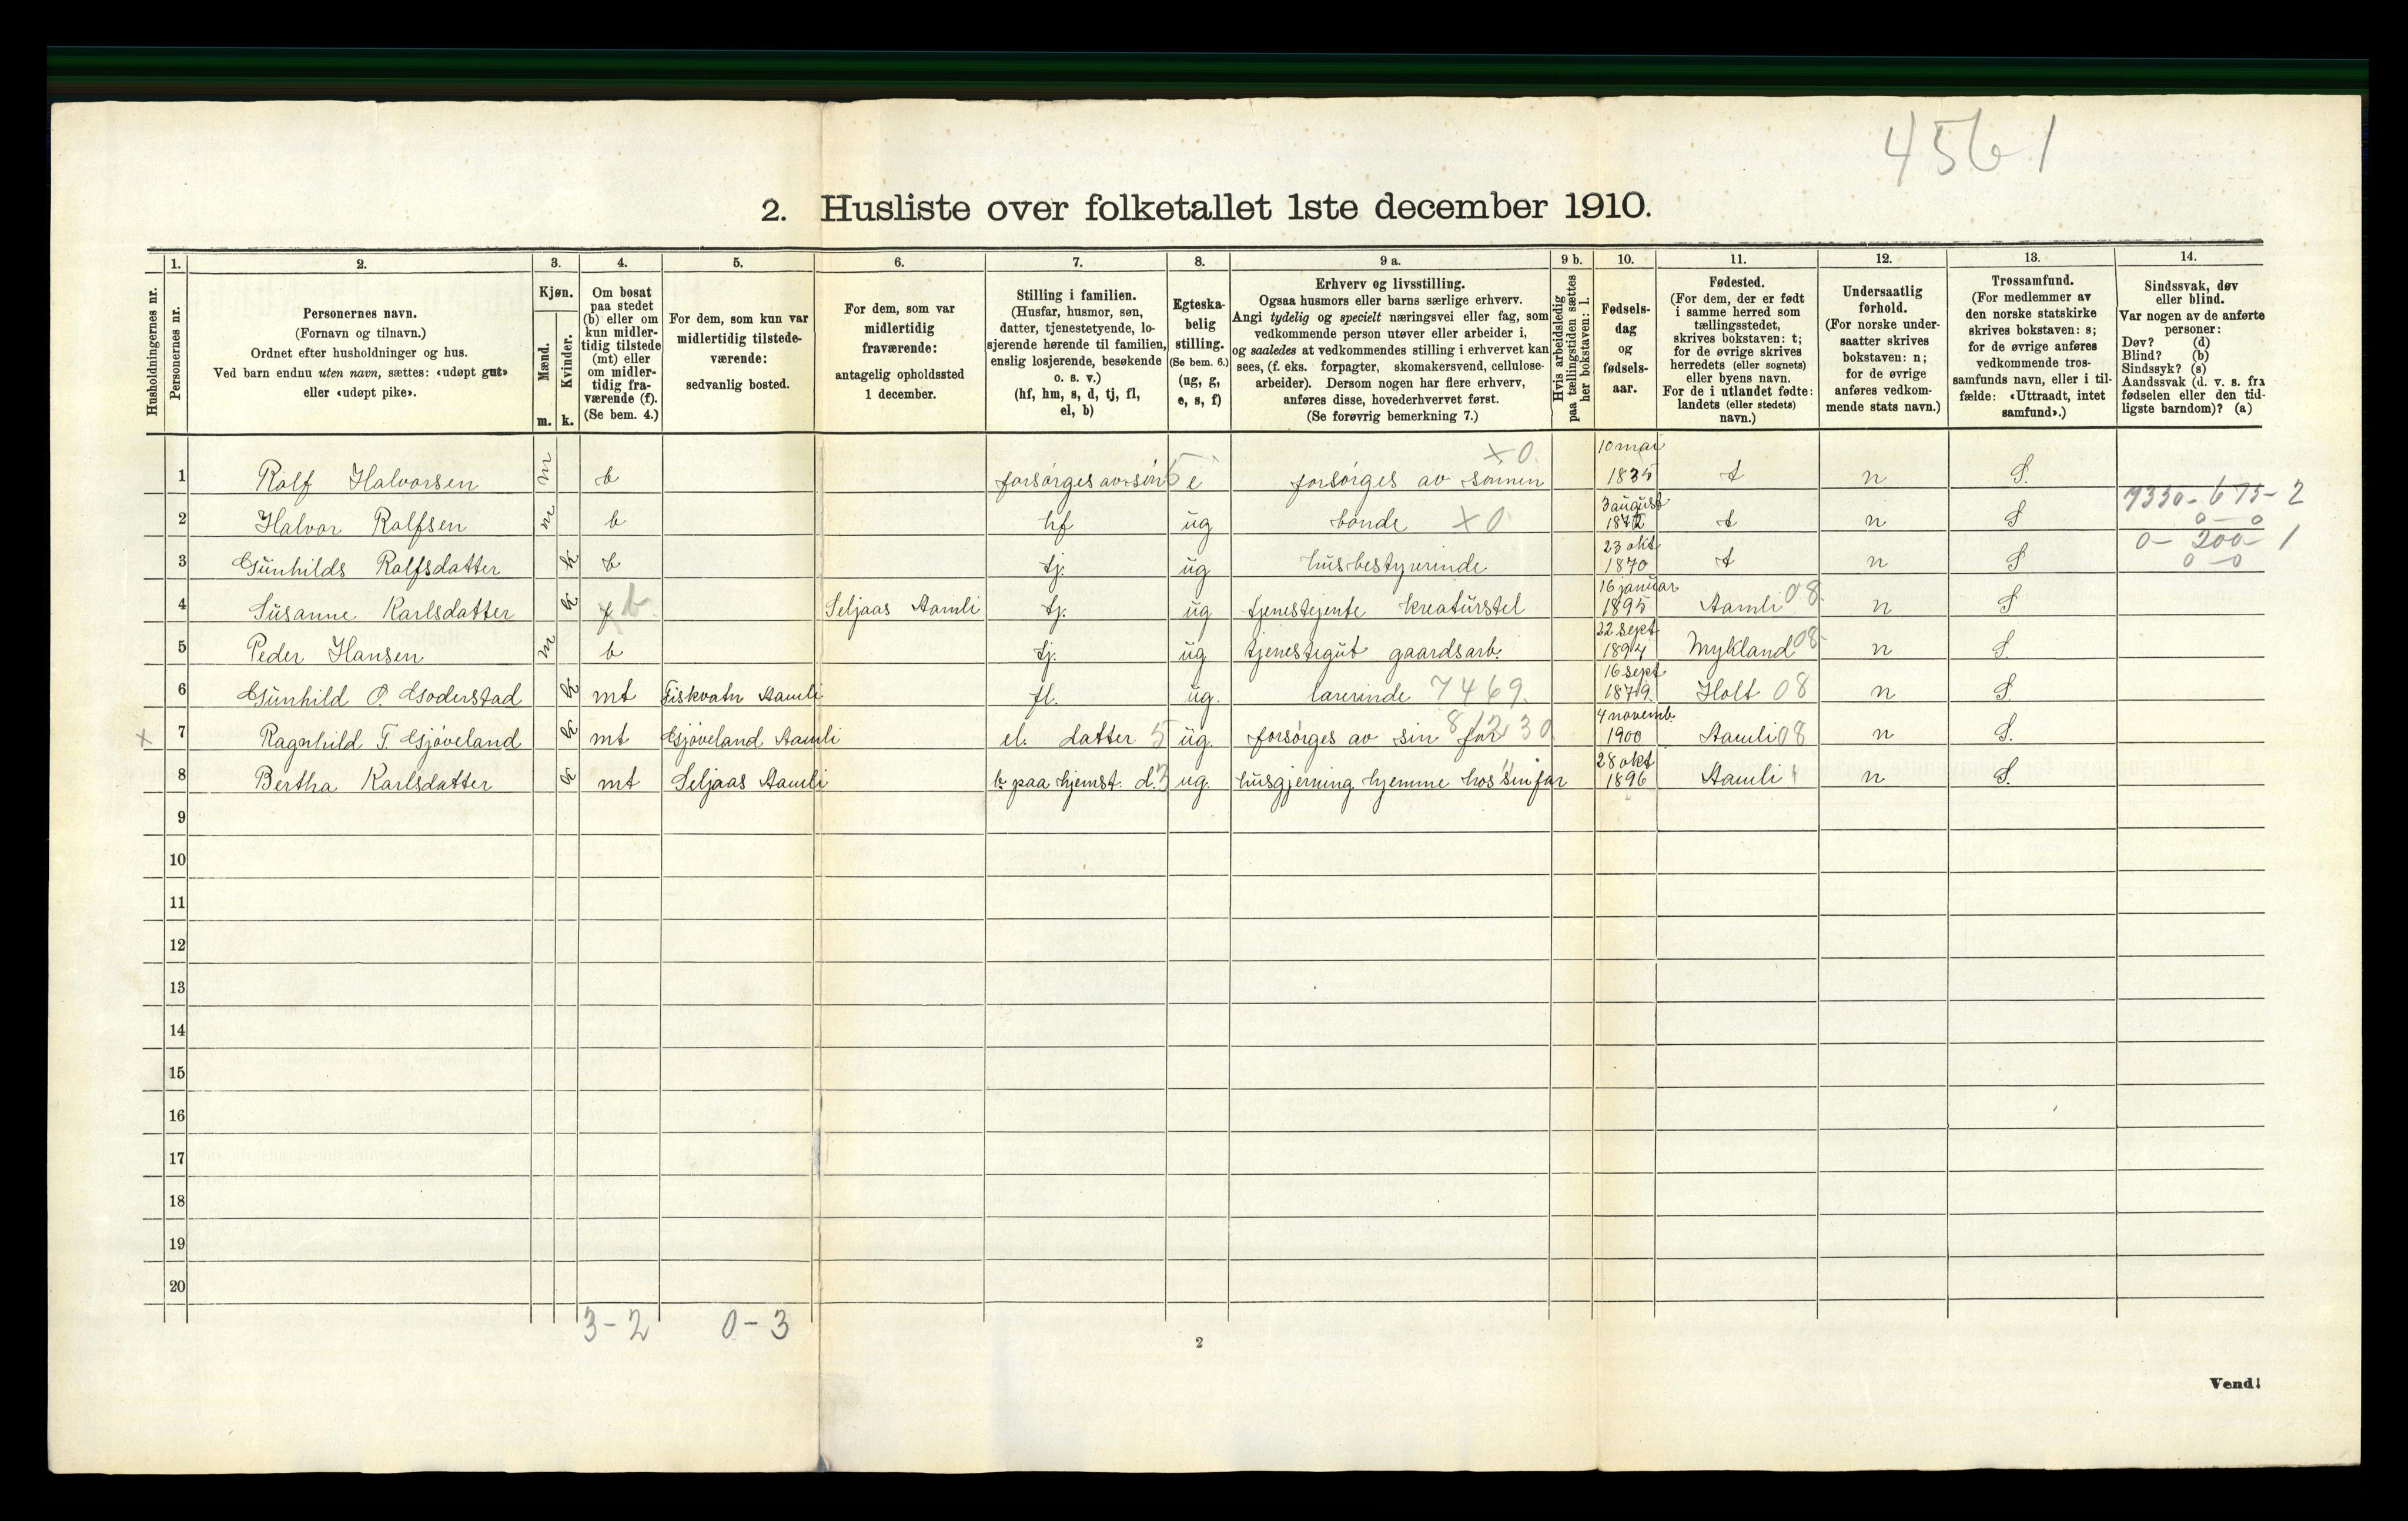 4561
2. Husliste over folketallet 1ste december 1910.
Husholdningernes nr.
1. 2. 3. 4. 5. 6. 7. 8. 9 a. 9 b. 10. 11. 12. 13. 14.
Personernes nr.
Personernes navn.
(Fornavn og tilnavn.)
Ordnet efter husholdninger og hus.
Ved barn endnu uten navn, sættes: «udøpt gut»
eller «udøpt pike».
Kjøn.
Mænd.
Kvinder.
m. k.
Om bosat
paa stedet
(b) eller om
kun midler-
tidig tilstede
(mt) eller
om midler-
tidig fra-
værende (f).
(Se bem. 4.)
For dem, som kun var
midlertidig tilstede-
værende:
sedvanlig bosted.
For dem, som var
midlertidig
fraværende:
antagelig opholdssted
1 december.
Stilling i familien.
(Husfar, husmor, søn,
datter, tjenestetyende, lo-
sjerende hørende til familien,
enslig losjerende, besøkende
o. s. v.)
(hf, hm, s, d, tj, fl,
el, b)
Egteska-
belig
stilling.
(Se bem. 6.)
(ug, g,
e, s, f)
Erhverv og livsstilling.
Ogsaa husmors eller barns særlige erhverv.
Angi tydelig og specielt næringsvei eller fag, som
vedkommende person utøver eller arbeider i,
og saaledes at vedkommendes stilling i erhvervet kan
sees, (f. eks. forpagter, skomakersvend, cellulose-
arbeider). Dersom nogen har flere erhverv,
anføres disse, hovederhvervet først.
(Se forøvrig bemerkning 7.)
Hvis arbeidsledig
paa tællingstiden sættes
her bokstaven: l.
Fødsels-
dag
og
fødsels-
aar.
Fødested.
(For dem, der er født
i samme herred som
tællingsstedet,
skrives bokstaven: t;
for de øvrige skrives
herredets (eller sognets)
eller byens navn.
For de i utlandet fødte:
landets (eller stedets)
navn.)
Undersaatlig
forhold.
(For norske under-
saatter skrives
bokstaven: n;
for de øvrige
anføres vedkom-
mende stats navn.)
Trossamfund.
(For medlemmer av
den norske statskirke
skrives bokstaven: s;
for de øvrige anføres
vedkommende tros-
samfunds navn, eller i til-
fælde: «Uttraadt, intet
samfund».)
Sindssvak, døv
eller blind.
Var nogen av de anførte
personer:
Døv? (d)
Blind? (b)
Sindssyk? (s)
Aandssvak (d. v. s. fra
fødselen eller den tid-
ligste barndom)? (a)
1 Rolf Halvorsen m b forsørges av søn 5 e forsørges av sønnen x0 10 mai 1835 t n S.
2 Halvor Rolfsen m b hf ug bonde x0 3 august 1872 t n S
0-0
3 Gunhilds Rolfsdatter k b tj. ug husbestyrerinde 23 okt 1870 t n S 0-200-1
0-0
4 Susanne Karlsdatter k f b Seljaas Aamli tj. ug tjenestejente kreaturstel 16 januar 1895 Aamli 08 n S
5 Peder Hansen m b tj. ug tjenestegut gaardsarb. 22 sept 1894 Mykland 08 n S.
6 Gunhild O. Goderstad k mt Fiskvatn Aamli fl. ug. lærerinde 7469. 16 sept 1879. Holt 08 n S.
x 7 Ragnhild T. Gjøveland k mt Gjøveland Aamli el. datter 5 ug. forsørges av sin far 4 novemb. 1900 Aamli 08 n S.
8 Bertha Karlsdatter k mt Seljaas Aamli b. paa hjemst: d. ug. husgjerning hjemme hos sin far 28 okt 1896 Aamli n S.
9
10
11
12
13
14
15
16
17
18
19
20
3-2 0-3
2
Vend!